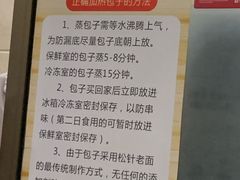 正确加热包子的方法
1、蒸包子需等水沸腾上气,
为防漏底尽量包子底朝上放。
保鲜室的包子蒸5-8分钟。
冷冻室的包子蒸15分钟。
2、包子买回家后立即放进
冰箱冷冻室密封保存,以防串
味(第二日食用的可暂时放进
保鲜室密封保存)。
3、由于包子采用松针老面
的最传统制作方式,无任何的添